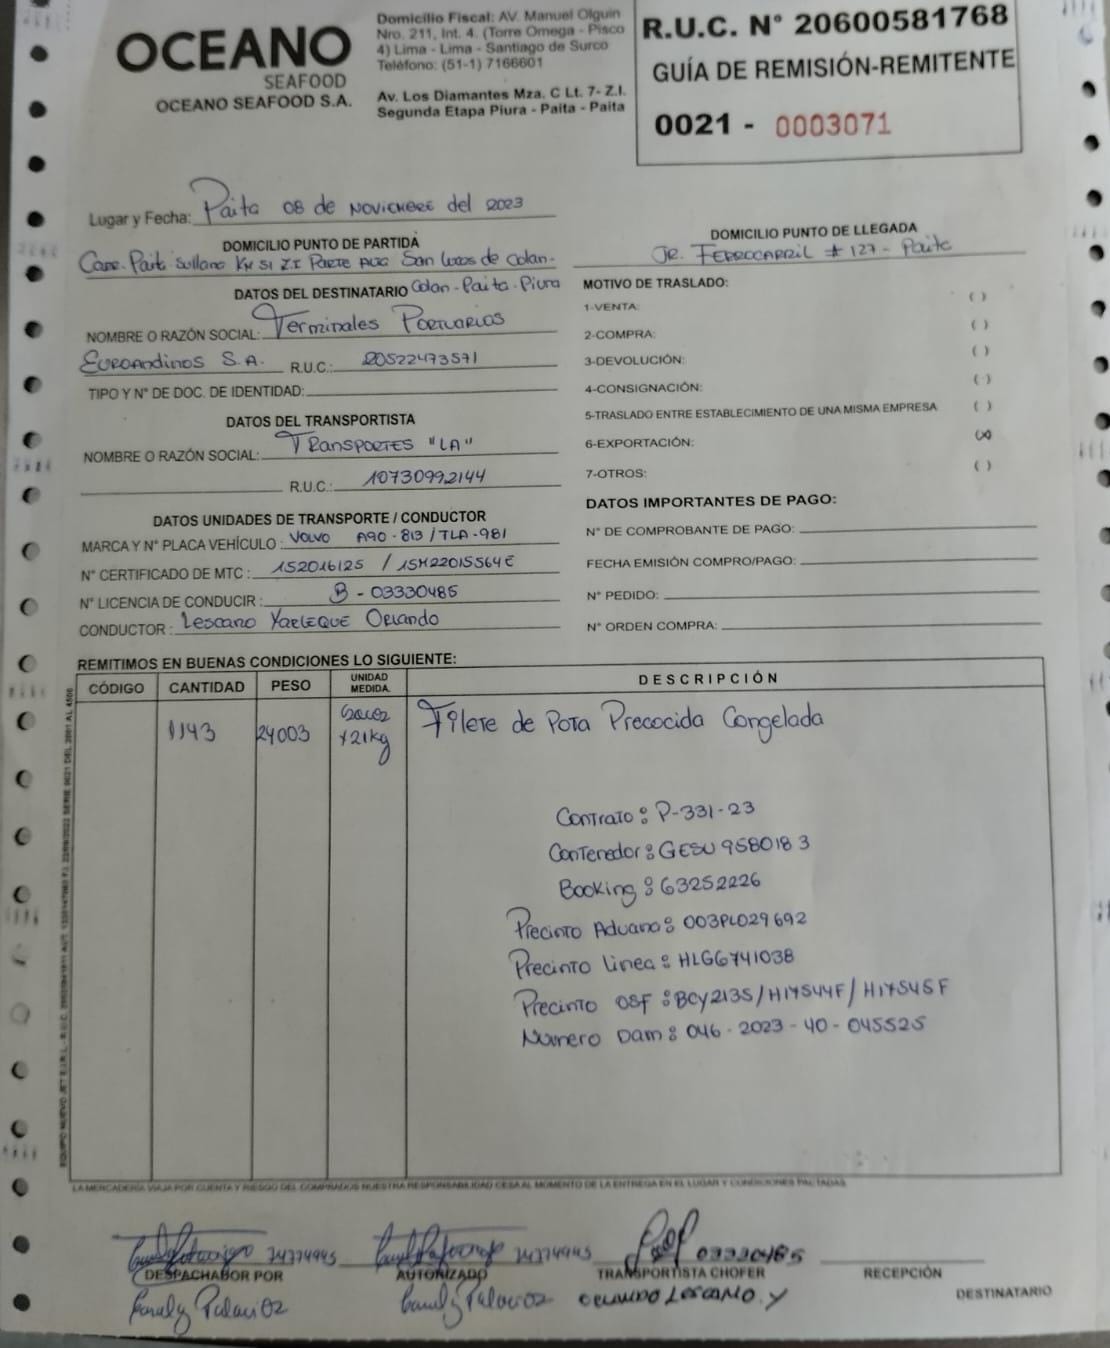 OCEANO
SEAFOOD
OCEANO SEAFOOD S.A.
Domicilio Fiscal: AV. Manuel Olguin
Nro. 211, Int. 4. (Torre Omega - Pisco
4) Lima - Lima - Santiago de Surco
Teléfono: (51-1) 7166601
Av. Los Diamantes Mza. C Lt. 7- Z.I.
Segunda Etapa Piura - Paita - Paita
R.U.C. N° 20600581768
GUÍA DE REMISIÓN-REMITENTE
0021 - 0003071
Lugar y Fecha: Paita 08 de Noviembre del 2023
DOMICILIO PUNTO DE PARTIDA
Carr. Paita Sullana KM 51 Z.I Parte San Lucas de Colan-
Colan-Paita-Piura
DOMICILIO PUNTO DE LLEGADA
Jr. Ferrocarril # 127 - Paita
DATOS DEL DESTINATARIO
NOMBRE O RAZÓN SOCIAL: Terminales Portuarios
Euroandinos S.A. R.U.C.: 20522473571
TIPO Y N° DE DOC. DE IDENTIDAD:
DATOS DEL TRANSPORTISTA
NOMBRE O RAZÓN SOCIAL: Transportes "LA"
R.U.C.: 10730992144
DATOS UNIDADES DE TRANSPORTE / CONDUCTOR
MARCA Y N° PLACA VEHÍCULO: Volvo A90-813/TLA-981
N° CERTIFICADO DE MTC: 152016125 / 15M22015564E
N° LICENCIA DE CONDUCIR: B-03330485
CONDUCTOR: Lescano Yarleque Orlando
MOTIVO DE TRASLADO:
1-VENTA: ( )
2-COMPRA: ( )
3-DEVOLUCIÓN: ( )
4-CONSIGNACIÓN: ( )
5-TRASLADO ENTRE ESTABLECIMIENTO DE UNA MISMA EMPRESA ( )
6-EXPORTACIÓN: (x)
7-OTROS: ( )
DATOS IMPORTANTES DE PAGO:
N° DE COMPROBANTE DE PAGO:
FECHA EMISIÓN COMPRO/PAGO:
N° PEDIDO:
N° ORDEN COMPRA:
REMITIMOS EN BUENAS CONDICIONES LO SIGUIENTE:
CÓDIGO CANTIDAD PESO UNIDAD MEDIDA. DESCRIPCIÓN
1143 24003 x21kg Filete de Pota Precocida Congelada
Contrato: P-331-23
Contenedor: GESU 958018 3
Booking: 63252226
Precinto Aduano: 003PL029692
Precinto Linea: HLG6741038
Precinto OSF: BCY2135/H17544F/H17545F
Numero Dam: 046-2023-40-045525
LA MERCADERÍA VIAJA POR CUENTA Y RIESGO DEL COMPRADOR NUESTRA RESPONSABILIDAD CESA AL MOMENTO DE LA ENTREGA EN EL LUGAR Y CONDICIONES PACTADAS
03330485
DESPACHADOR POR
AUTORIZADO
TRANSPORTISTA CHOFER
RECEPCIÓN
Palacios
Palacios
Orlando Lescano. Y
DESTINATARIO